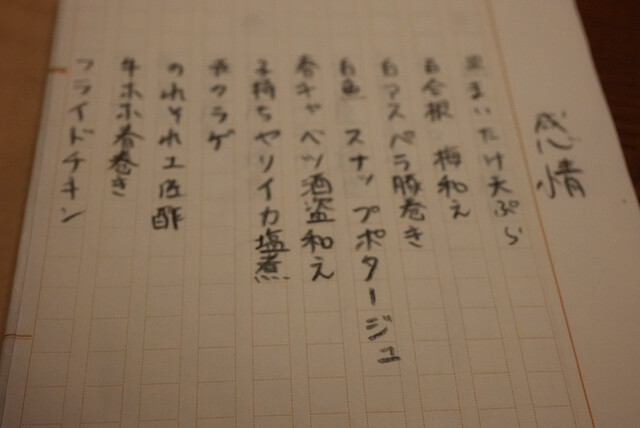 感情
黒まいたけ天ぷら
百合根 梅和え
白アスパラ豚巻き
白魚 スナップポタージュ
春キャベツ酒盗和え
子持ちヤリイカ塩煮
水クラゲ
のれそれ土佐酢
牛ホホ春巻き
フライドチキン